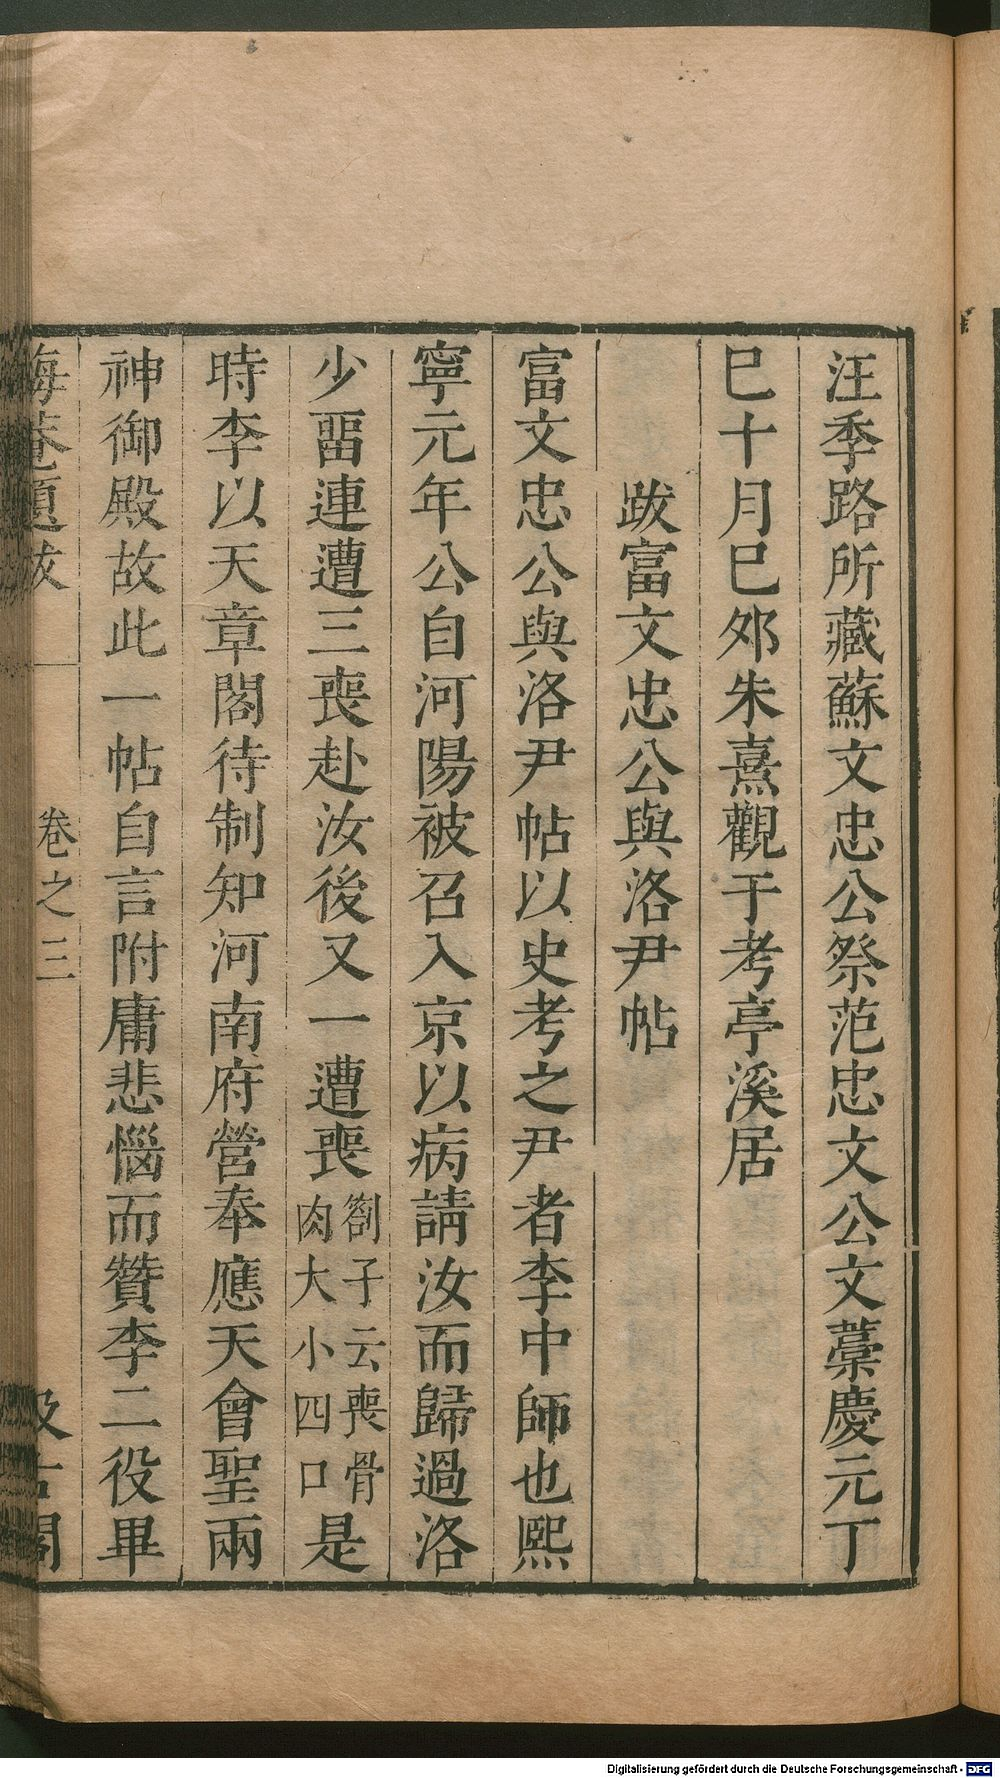 汪季路所藏蘇文忠公祭范忠文公文藁慶元丁
巳十月巳夘朱熹觀于考亭溪居
跋富文忠公與洛尹帖
富文忠公與洛尹帖以史考之尹者李中師也熙
寧元年公自河陽被召入京以病請汝而歸過洛
少畱連遭三喪赴汝後又一遭喪劄子云喪骨肉大小四口是
時李以天章閣待制知河南府營奉應天會聖兩
神御殿故此一帖自言附庸悲惱而贊李二役畢
海菴題跋 卷之三 汲古閣
Digitalisierung gefördert durch die Deutsche Forschungsgemeinschaft - DFG